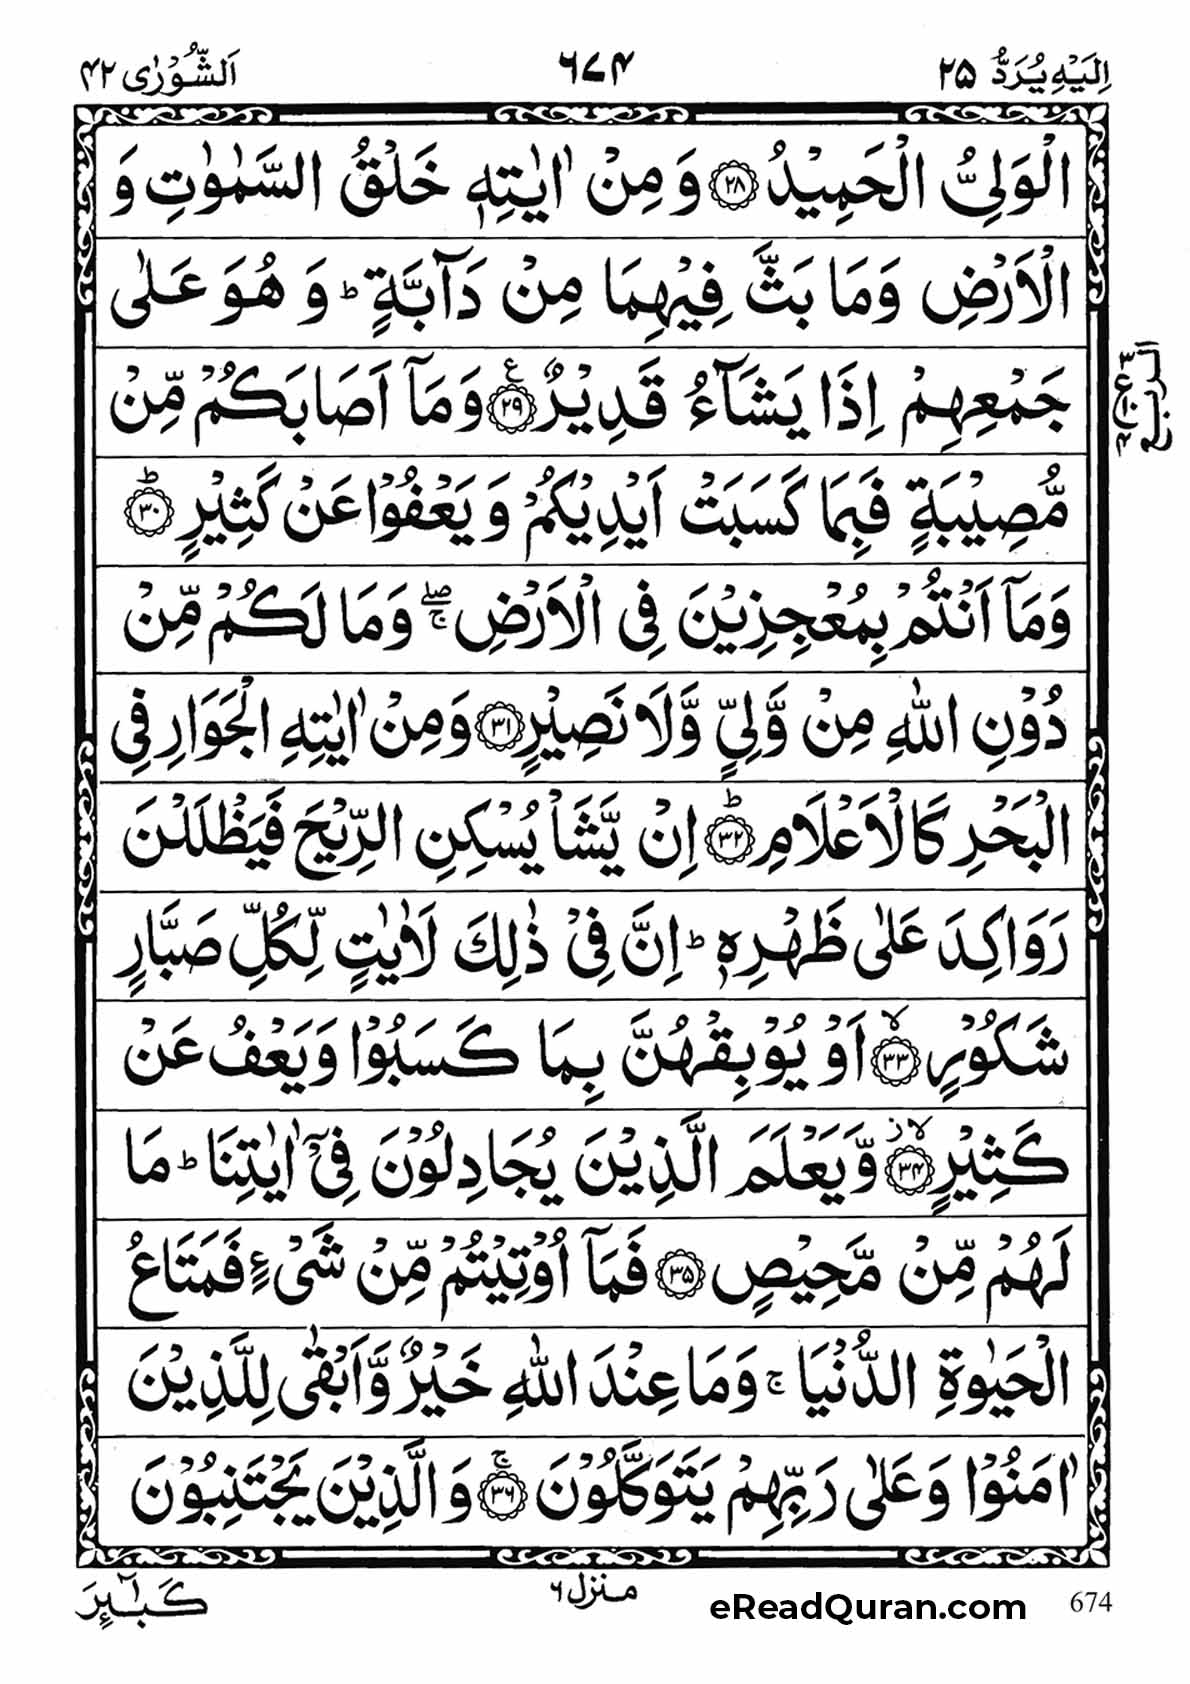 اِلَیْهِ یُرَدُّ ۲۵
۶۷۴
اَلشُّوْرٰی ۴۲
الْوَلِیُّ الْحَمِیْدُ ﴿۲۸﴾ وَ مِنْ اٰیٰتِهٖ خَلْقُ السَّمٰوٰتِ وَ
الْاَرْضِ وَمَا بَثَّ فِیْهِمَا مِنْ دَآبَّةٍ ؕ وَ هُوَ عَلٰی
جَمْعِهِمْ اِذَا یَشَآءُ قَدِیْرٌ ﴿۲۹﴾ ع وَمَاۤ اَصَابَكُمْ مِّنْ
مُّصِیْبَةٍ فَبِمَا كَسَبَتْ اَیْدِیْكُمْ وَ یَعْفُوْا عَنْ كَثِیْرٍ ﴿۳۰﴾ؕ
وَمَاۤ اَنْتُمْ بِمُعْجِزِیْنَ فِی الْاَرْضِ ۚۖ وَمَا لَكُمْ مِّنْ
دُوْنِ اللّٰهِ مِنْ وَّلِیٍّ وَّلَا نَصِیْرٍ ﴿۳۱﴾ وَمِنْ اٰیٰتِهِ الْجَوَارِ فِی
الْبَحْرِ كَالْاَعْلَامِ ﴿۳۲﴾ؕ اِنْ یَّشَاْ یُسْكِنِ الرِّیْحَ فَیَظْلَلْنَ
رَوَاكِدَ عَلٰی ظَهْرِهٖ ؕ اِنَّ فِیْ ذٰلِكَ لَاٰیٰتٍ لِّكُلِّ صَبَّارٍ
شَكُوْرٍ ﴿۳۳﴾ۙ اَوْ یُوْبِقْهُنَّ بِمَا كَسَبُوْا وَیَعْفُ عَنْ
كَثِیْرٍ ﴿۳۴﴾ لا ز وَّیَعْلَمَ الَّذِیْنَ یُجَادِلُوْنَ فِیْۤ اٰیٰتِنَا ؕ مَا
لَهُمْ مِّنْ مَّحِیْصٍ ﴿۳۵﴾ فَمَاۤ اُوْتِیْتُمْ مِّنْ شَیْءٍ فَمَتَاعُ
الْحَیٰوةِ الدُّنْیَا ۚ وَمَا عِنْدَ اللّٰهِ خَیْرٌ وَّاَبْقٰی لِلَّذِیْنَ
اٰمَنُوْا وَعَلٰی رَبِّهِمْ یَتَوَكَّلُوْنَ ﴿۳۶﴾ۚ وَالَّذِیْنَ یَجْتَنِبُوْنَ
الربع
كَبٰٓىِٕرَ
منزل ۶
eReadQuran.com
674